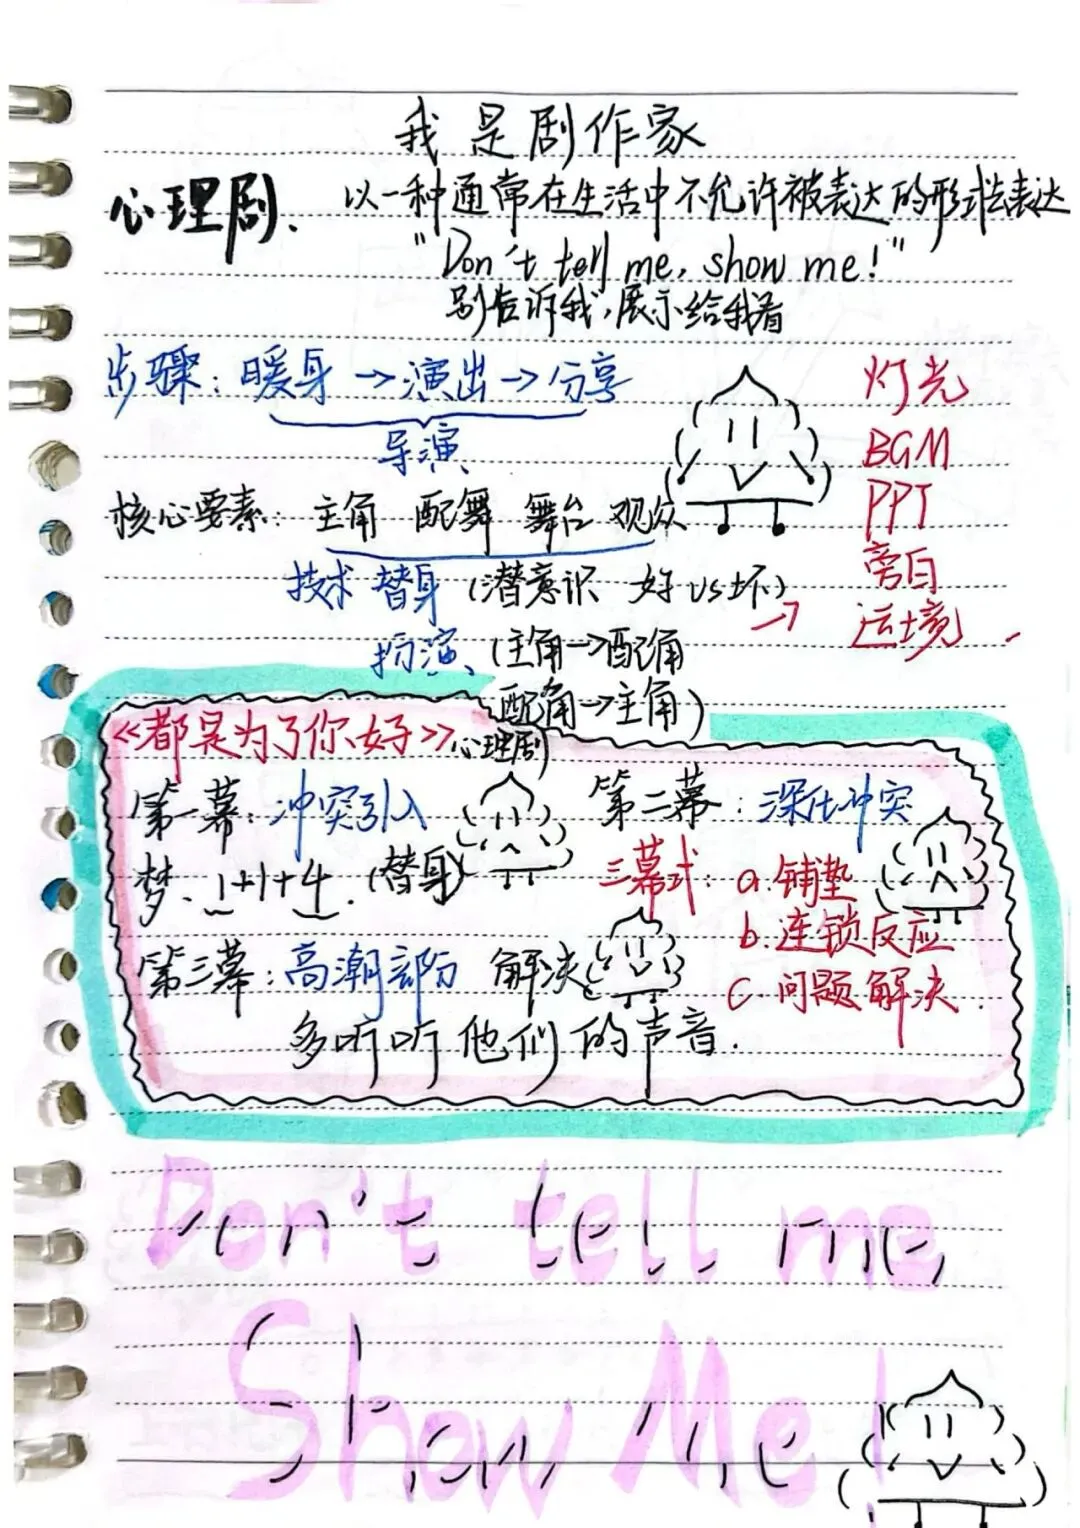 我是剧作家
心理剧. 以一种通常在生活中不允许被表达的形式去表达
"Don't tell me, show me!"
别告诉我,展示给我看
步骤:暖身→演出→分享
导演
核心要素:主角 配舞 舞台 观众
技术 替身 (潜意识 好vs坏)
扮演 (主角→配角
配角→主角)
灯光
BGM
PPT
旁白
→
《都是为了你好》心理剧
第一幕:冲突引入
梦. 1+1+4. (替身)
第二幕:深化冲突
三幕式: a.铺垫
b.连锁反应
c.问题解决.
第三幕:高潮部分 解决
多听听他们的声音.
Don't tell me,
Show Me!